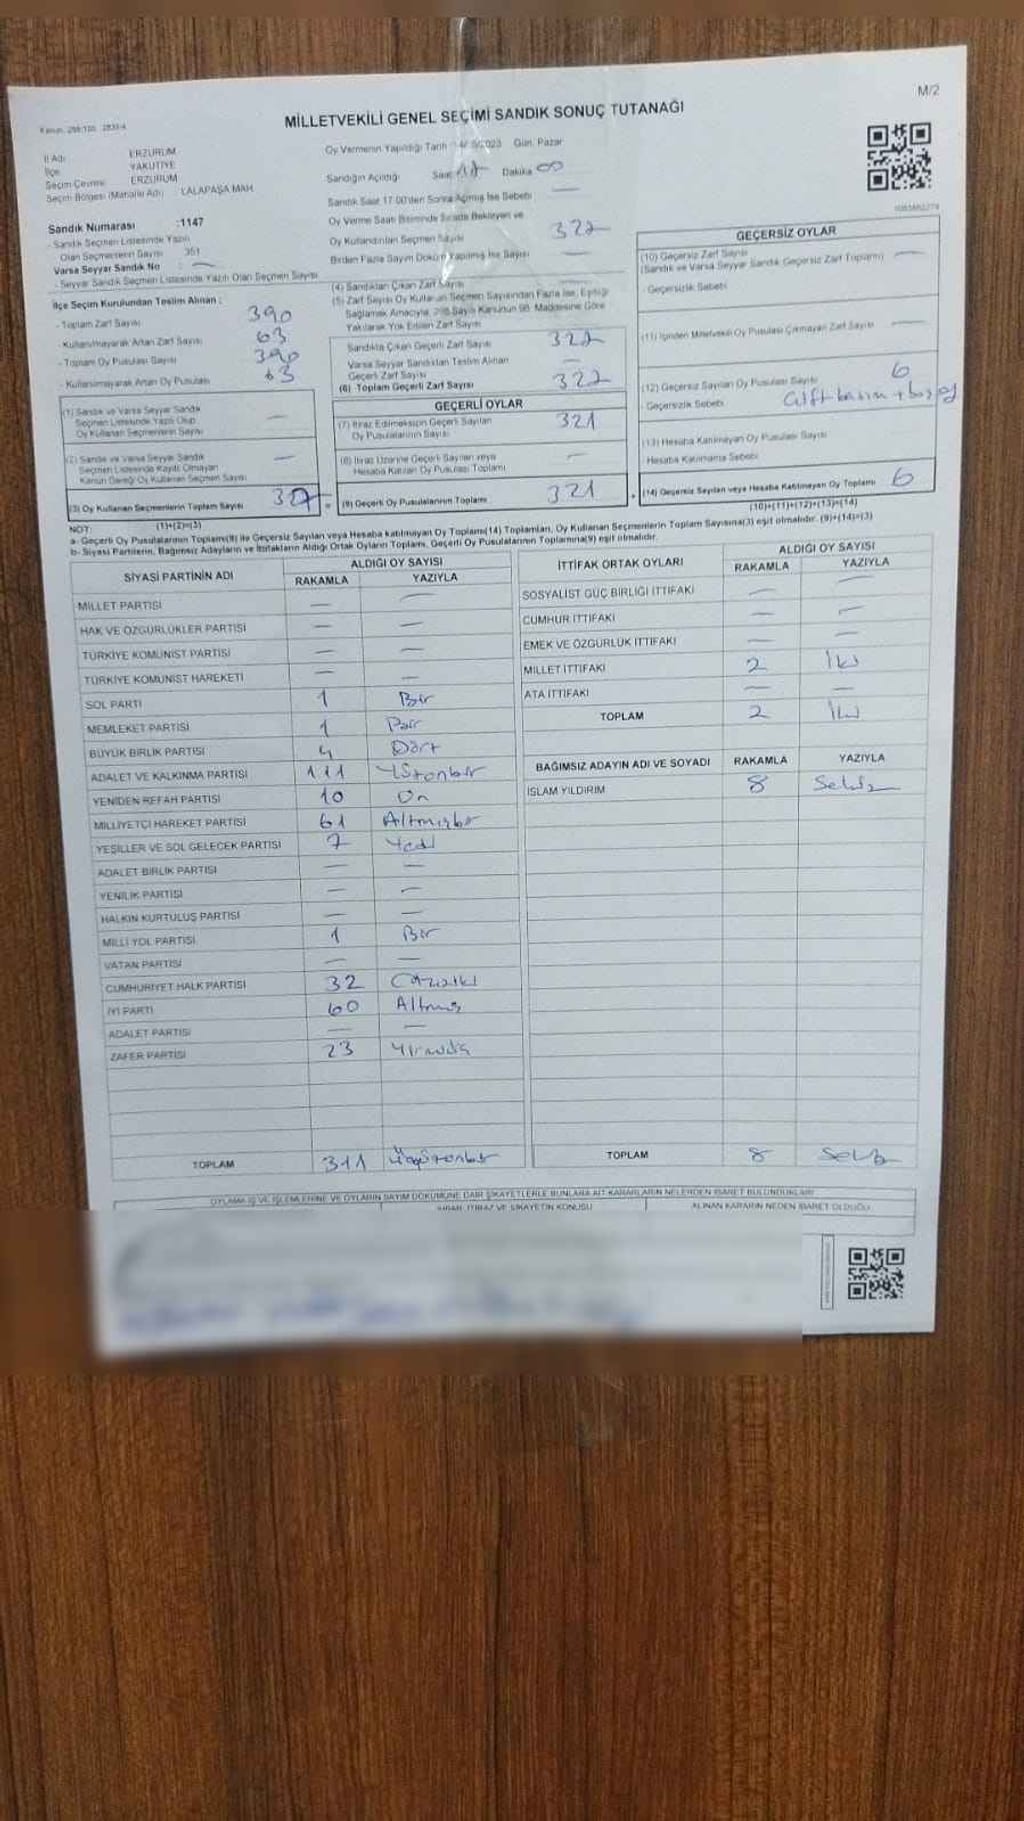 M/2
MİLLETVEKİLİ GENEL SEÇİMİ SANDIK SONUÇ TUTANAĞI
İl Adı ERZURUM
İlçe YAKUTİYE
Seçim Çevresi ERZURUM
Seçim Bölgesi (Mahalle Adı) LALAPAŞA MAH
Sandık Numarası :1147
- Sandık Seçmen Listesinde Yazılı
Olan Seçmenlerin Sayısı 351
Varsa Seyyar Sandık No : —
- Seyyar Sandık Seçmen Listesinde Yazılı Olan Seçmen Sayısı
İlçe Seçim Kurulundan Teslim Alınan :
- Toplam Zarf Sayısı 390
- Kullanılmayarak Artan Zarf Sayısı 63
- Toplam Oy Pusulası Sayısı 390
- Kullanılmayarak Artan Oy Pusulası 63
(1) Sandık ve Varsa Seyyar Sandık
Seçmen Listesinde Yazılı Olup
Oy Kullanan Seçmenlerin Sayısı —
(2) Sandık ve Varsa Seyyar Sandık
Seçmen Listesinde Kayıtlı Olmayan
Kanun Gereği Oy Kullanan Seçmen Sayısı —
(3) Oy Kullanan Seçmenlerin Toplam Sayısı 327
(1)+(2)=(3)
Oy Vermenin Yapıldığı Tarih 14/5/2023 Gün: Pazar
Sandığın Açıldığı Saat 17 Dakika 00
Sandık Saat 17.00'den Sonra Açılmış İse Sebebi —
Oy Verme Saati Bitiminde Sırada Bekleyen ve
Oy Kullandırılan Seçmen Sayısı 322
Birden Fazla Sayım Döküm Yapılmış İse Sayısı —
(4) Sandıktan Çıkan Zarf Sayısı
(5) Zarf Sayısı Oy Kullanan Seçmen Sayısından Fazla İse, Eşitliği
Sağlamak Amacıyla, 298 Sayılı Kanunun 98. Maddesine Göre
Yakılarak Yok Edilen Zarf Sayısı
Sandıkta Çıkan Geçerli Zarf Sayısı 322
Varsa Seyyar Sandıktan Teslim Alınan
Geçerli Zarf Sayısı —
(6) Toplam Geçerli Zarf Sayısı 322
GEÇERLİ OYLAR
(7) İtiraz Edilmeksizin Geçerli Sayılan
Oy Pusulalarının Sayısı 321
(8) İtiraz Üzerine Geçerli Sayılan veya
Hesaba Katılan Oy Pusulası Toplamı —
(9) Geçerli Oy Pusulalarının Toplamı 321
GEÇERSİZ OYLAR
(10) Geçersiz Zarf Sayısı
(Sandık ve Varsa Seyyar Sandık Geçersiz Zarf Toplamı) —
- Geçersizlik Sebebi
(11) İçinden Milletvekili Oy Pusulası Çıkmayan Zarf Sayısı —
(12) Geçersiz Sayılan Oy Pusulası Sayısı 6
- Geçersizlik Sebebi Çift basım + boş oy
(13) Hesaba Katılmayan Oy Pusulası Sayısı
Hesaba Katılmama Sebebi
(14) Geçersiz Sayılan veya Hesaba Katılmayan Oy Toplamı 6
(10)+(11)+(12)+(13)=(14)
NOT:
a- Geçerli Oy Pusulalarının Toplamı(9) ile Geçersiz Sayılan veya Hesaba katılmayan Oy Toplamı(14) Toplamları, Oy Kullanan Seçmenlerin Toplam Sayısına(3) eşit olmalıdır. (9)+(14)=(3)
b- Siyasi Partilerin, Bağımsız Adayların ve İttifakların Aldığı Ortak Oyların Toplamı, Geçerli Oy Pusulalarının Toplamına(9) eşit olmalıdır.
SİYASİ PARTİNİN ADI ALDIĞI OY SAYISI
RAKAMLA YAZIYLA
MİLLET PARTİSİ — —
HAK VE ÖZGÜRLÜKLER PARTİSİ — —
TÜRKİYE KOMÜNİST PARTİSİ — —
TÜRKİYE KOMÜNİST HAREKETİ — —
SOL PARTİ 1 Bir
MEMLEKET PARTİSİ 1 Bir
BÜYÜK BİRLİK PARTİSİ 4 Dört
ADALET VE KALKINMA PARTİSİ 111 Yüzonbir
YENİDEN REFAH PARTİSİ 10 On
MİLLİYETÇİ HAREKET PARTİSİ 61 Altmışbir
YEŞİLLER VE SOL GELECEK PARTİSİ 7 Yedi
ADALET BİRLİK PARTİSİ — —
YENİLİK PARTİSİ — —
HALKIN KURTULUŞ PARTİSİ — —
MİLLİ YOL PARTİSİ 1 Bir
VATAN PARTİSİ — —
CUMHURİYET HALK PARTİSİ 32 Otuziki
İYİ PARTİ 60 Altmış
ADALET PARTİSİ — —
ZAFER PARTİSİ 23 Yirmiüç
TOPLAM 311 Üçyüzonbir
İTTİFAK ORTAK OYLARI ALDIĞI OY SAYISI
RAKAMLA YAZIYLA
SOSYALİST GÜÇ BİRLİĞİ İTTİFAKI — —
CUMHUR İTTİFAKI — —
EMEK VE ÖZGÜRLÜK İTTİFAKI — —
MİLLET İTTİFAKI 2 İki
ATA İTTİFAKI — —
TOPLAM 2 İki
BAĞIMSIZ ADAYIN ADI VE SOYADI RAKAMLA YAZIYLA
İSLAM YILDIRIM 8 Sekiz
TOPLAM 8 Sekiz
OYLAMA İŞ VE İŞLEMLERİNE VE OYLARIN SAYIM DÖKÜMÜNE DAİR ŞİKAYETLERLE BUNLARA AİT KARARLARIN NELERDEN İBARET BULUNDUKLARI
İTİRAZ VE ŞİKAYETİN KONUSU ALINAN KARARIN NEDEN İBARET OLDUĞU